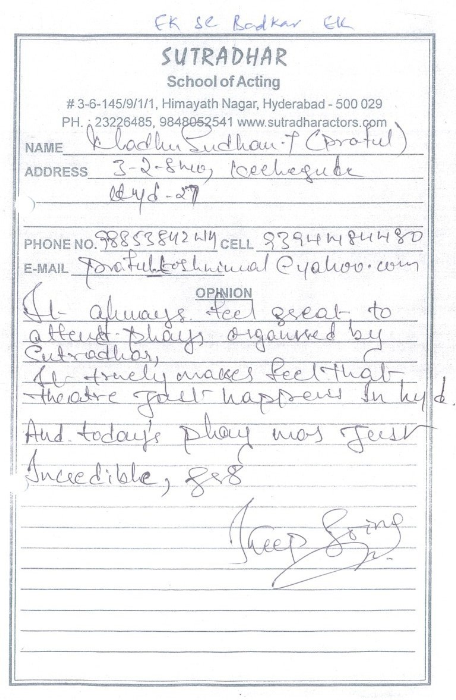 EK SE Badkar EK
SUTRADHAR
School of Acting
# 3-6-145/9/1/1, Himayath Nagar, Hyderabad - 500 029
PH. : 23226485, 9848052541 www.sutradharactors.com
NAME (Pratul)
ADDRESS 3-2-
Hyd-27
PHONE NO. CELL 9394484480
E-MAIL @yahoo.com
OPINION
It always feel great to
attend plays organised by
Sutradhar,
It truely makes feel that
theatre just happens In hyd.
And today's play was just
Incredible,
Keep Going